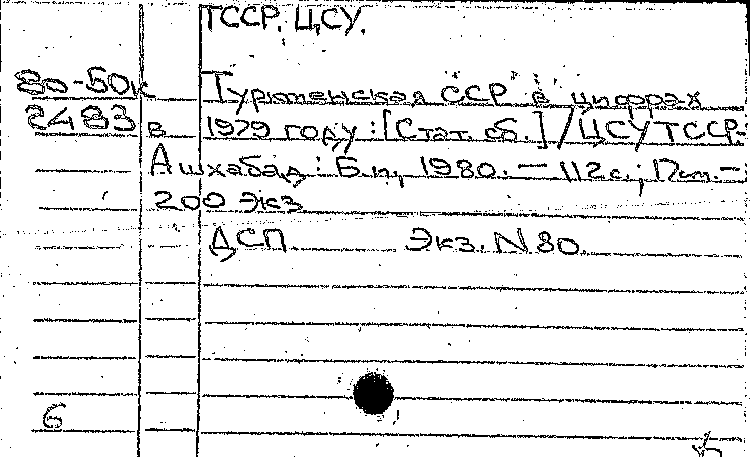 ТССР. ЦСУ.
80-50к Туркменская ССР в цифрах
2483 в 1979 году : [Стат. сб.] / ЦСУ ТССР.-
Ашхабад : Б.и, 1980. — 112 с.;
200 экз
ДСП Экз. N 80.
6